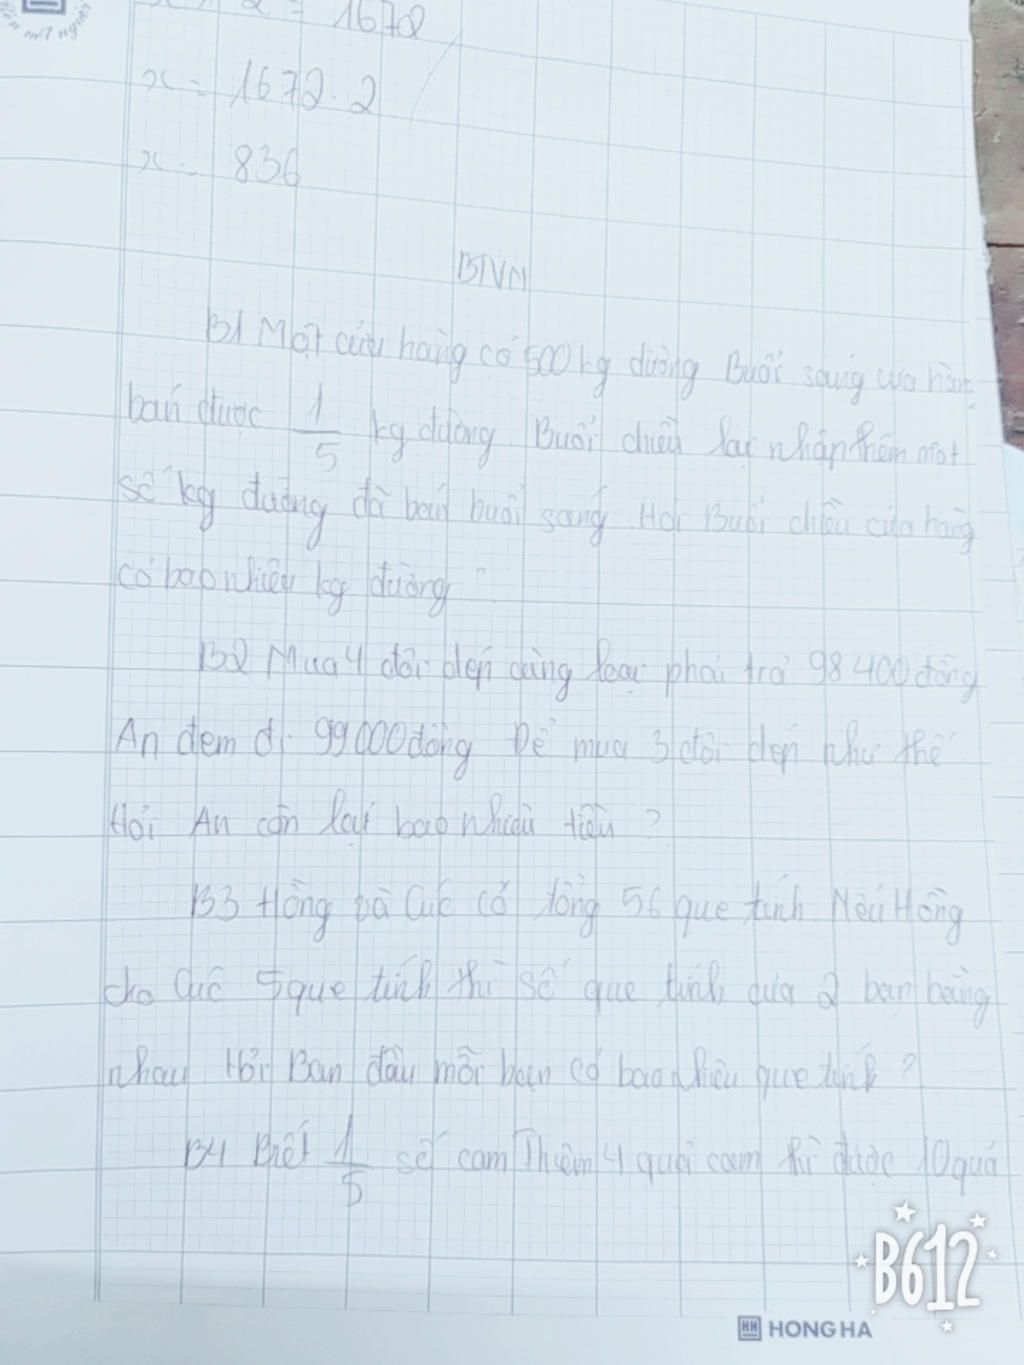 một người
x × 2 = 1672
x = 1672 . 2
x = 836
BTVN
B1 Một cửa hàng có 500 kg đường Buổi sáng cửa hàng
bán được 1/5 kg đường. Buổi chiều lại nhập thêm một
số kg đường đã bán buổi sáng Hỏi Buổi chiều cửa hàng
có bao nhiêu kg đường ?
B2 Mua 4 đôi dép cùng loại phải trả 98 400 đồng
An đem đi 99 000 đồng Để mua 3 đôi dép như thế
Hỏi An còn lại bao nhiêu tiền ?
B3 Hồng và Cúc có tổng 56 que tính Nếu Hồng
cho Cúc 5 que tính thì số que tính của 2 bạn bằng
nhau Hỏi Ban đầu mỗi bạn có bao nhiêu que tính ?
B4 Biết 1/5 số cam Thêm 4 quả cam thì được 10 quả
B612
HONG HA